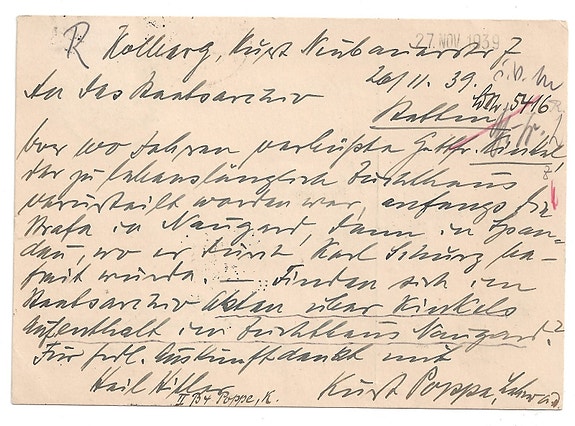 R Kolberg, Kurt Neubauerstr 7
27. NOV. 1939
26/11. 39.
An das Staatsarchiv
Stettin
5416
Vor 90 Jahren verbüßte Gottfr. Kinkel,
der zu lebenslänglich Zuchthaus
verurteilt worden war, anfangs die
Strafe in Naugard, dann in Span-
dau, wo er durch Karl Schurz be-
freit wurde. — Finden sich im
Staatsarchiv Akten über Kinkels
Aufenthalt im Zuchthaus Naugard?
Für frdl. Auskunft dankt mit
Heil Hitler
Kurt Poppe, Lehrer i.R.
II B4 Poppe, K.